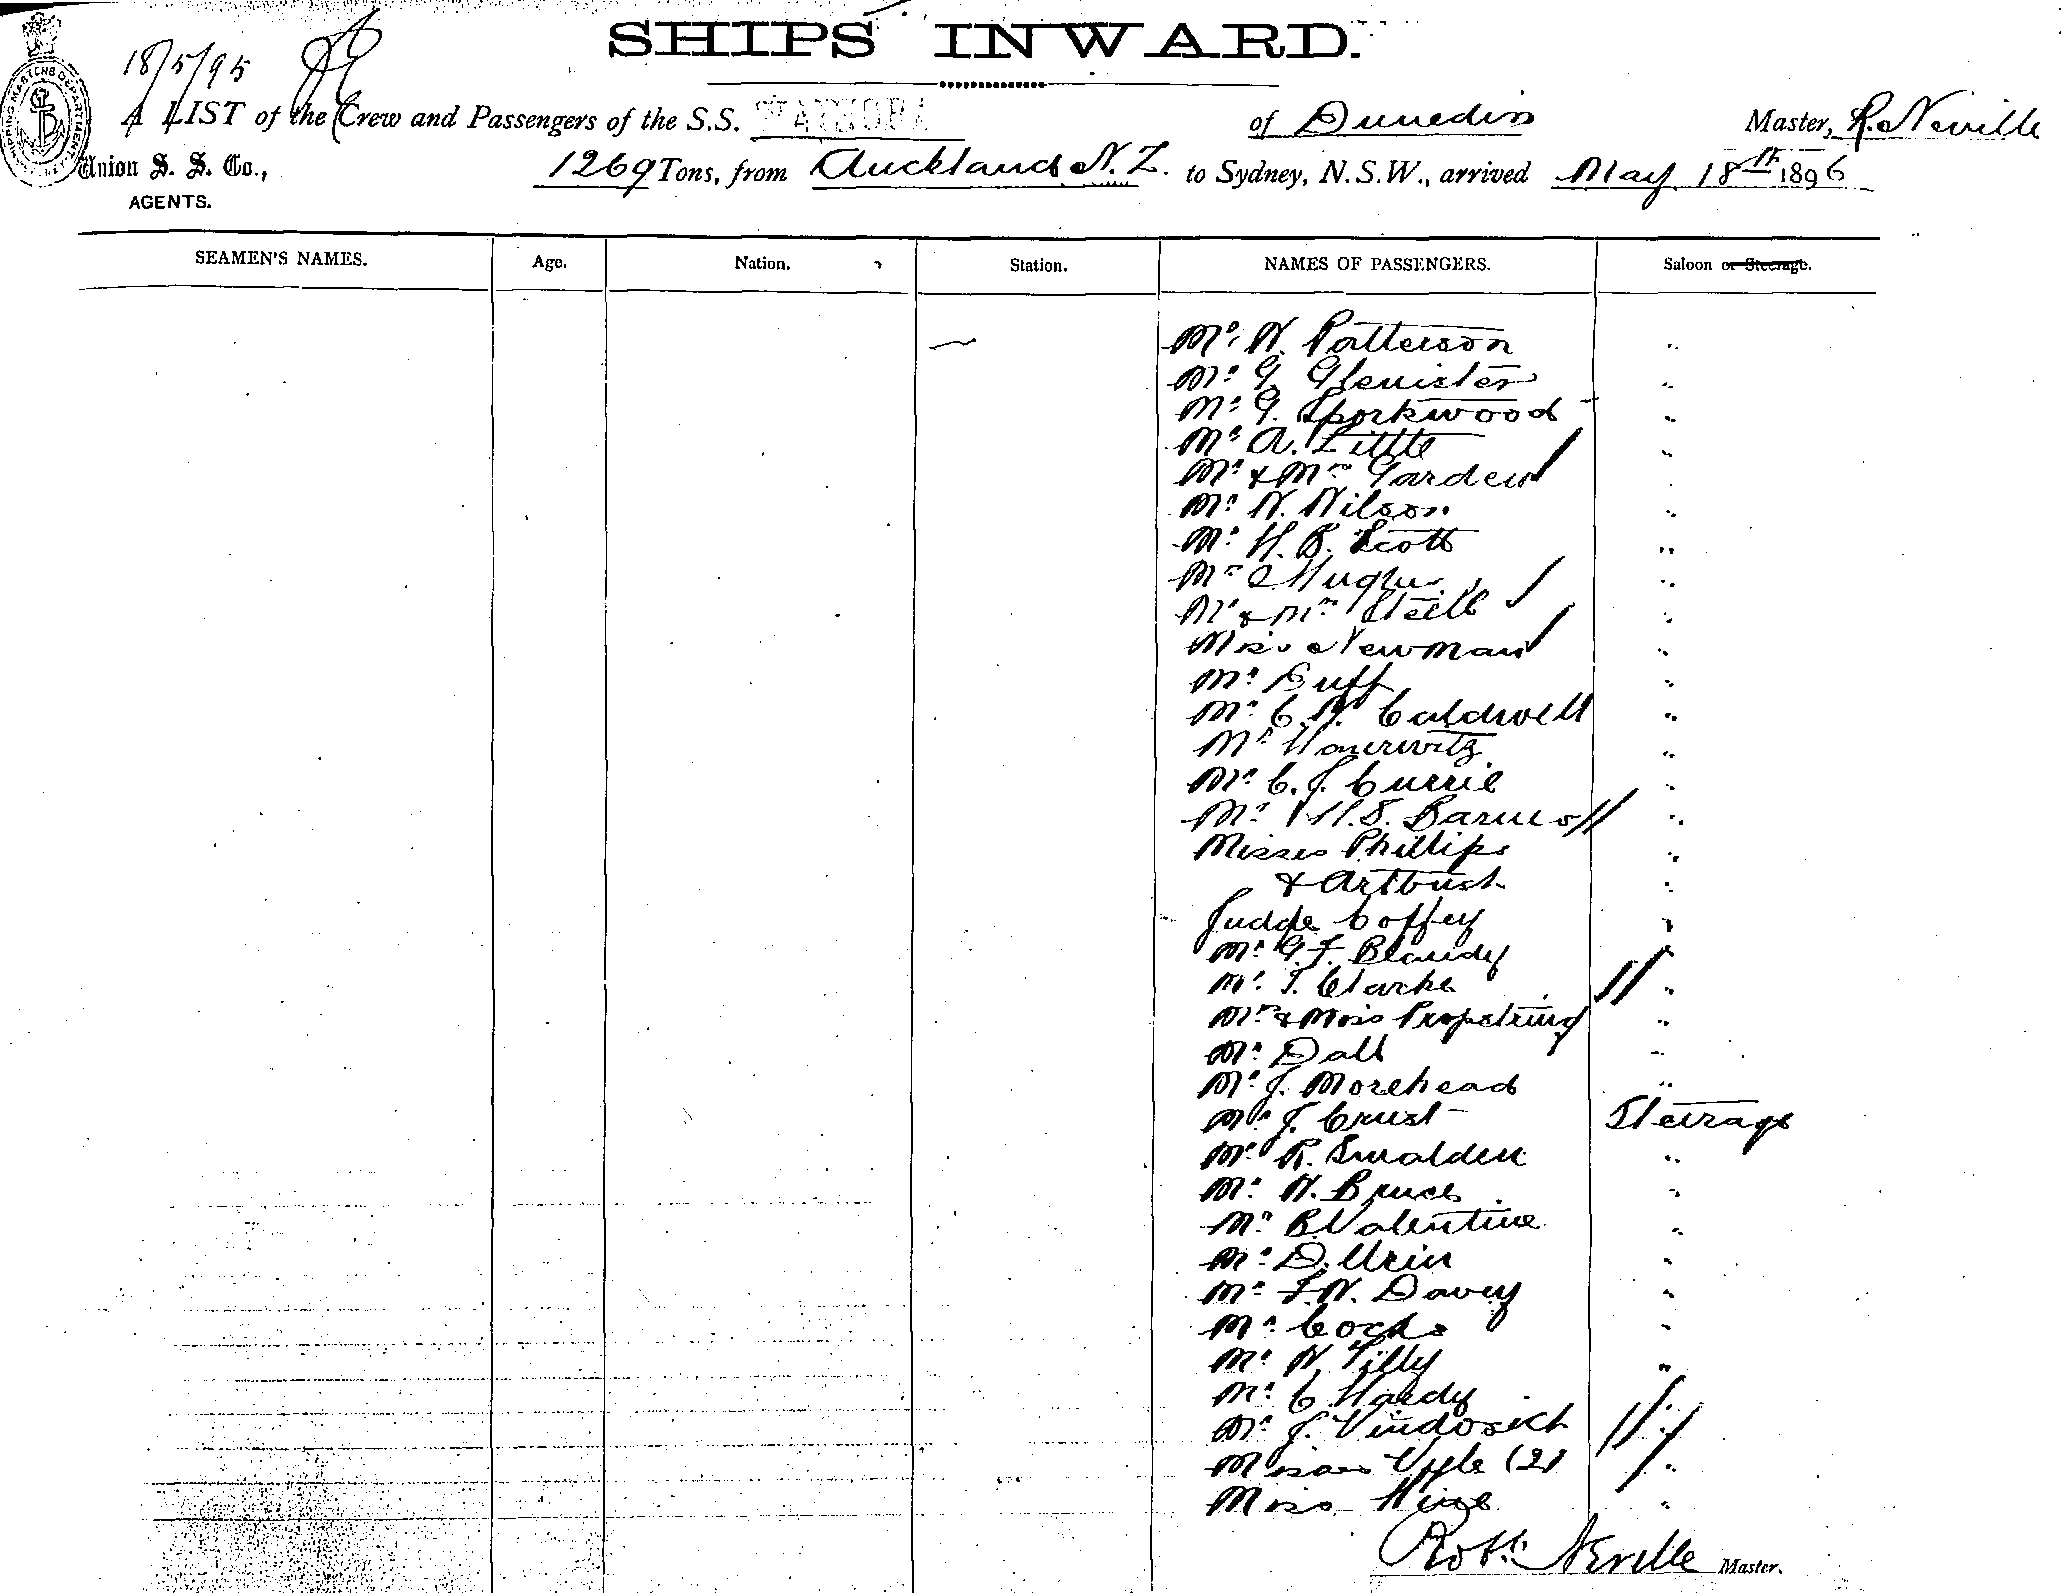 SHIPS INWARD.
18/5/95
A LIST of the Crew and Passengers of the S.S. of Dunedin Master, R. Neville
Union S. S. Co., 1269 Tons, from Auckland N.Z. to Sydney, N.S.W., arrived May 18th 1896
AGENTS.
SEAMEN'S NAMES. Age. Nation. Station. NAMES OF PASSENGERS. Saloon or Steerage.
Mr. W. Patterson "
Mr. G. Glenister "
Mr. G. Sporkwood "
Mr. A. Little "
Mr. & Mrs Garden
Mr. W. Wilson "
Mr. H. B. Scott "
Mr Hughes "
Mr & Mrs "
Miss Newman "
Mr. Duff "
Mr. C. W. Caldwell "
Mr. "
Mr. C. J. Currie "
Mr. H. S. "
Misses Phillips "
& "
Judge Coffey "
Mr. G. F. Blandy "
Mr. T. Clarke "
Mrs & Miss "
Mr. Dall "
Mr. J. Morehead "
Mr. J. Crust Steerage
Mr. R. Smalden "
Mr. W. Bruce "
Mr. B. Valentine "
Mr. D. Urin "
Mr. F. W. Davey "
Mr. Cocks "
Mr. W. Tilly "
Mr. C. Hardy "
Mr. J. "
Misses Vyle (2) "
Miss "
Robt. Neville Master.